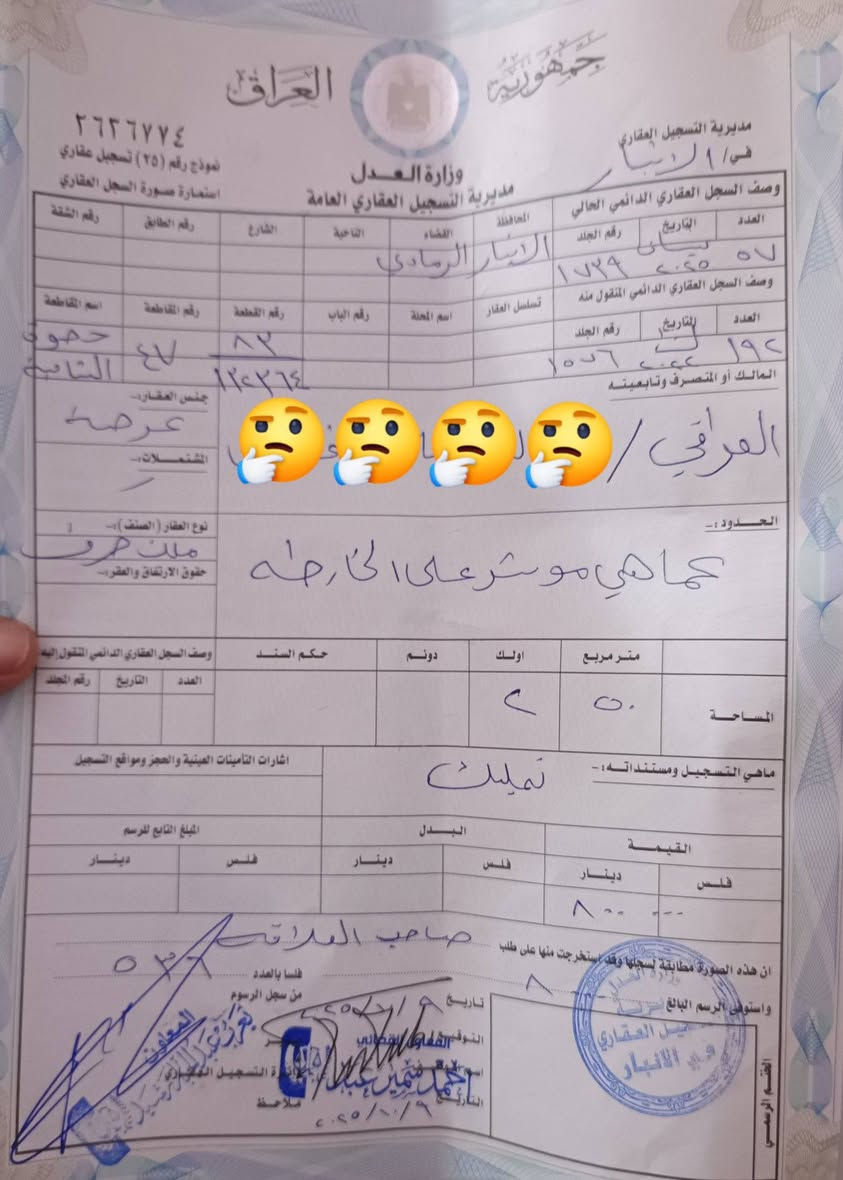 جمهورية العراق
٢٦٣٦٧٧٤
مديرية التسجيل العقاري
في/ الانبار
نموذج رقم (٢٥) تسجيل عقاري
استمارة صورة السجل العقاري
وزارة العـدل
مديرية التسجيل العقاري العامة
وصف السجل العقاري الدائمي الحالي
المحافظة القضاء الناحية الشارع رقم الطابق رقم الشقة
العدد التاريخ رقم الجلد
الانبار الرمادي
٥٧ ٢٠٢٥ ١٧٣٩
وصف السجل العقاري الدائمي المنقول منه
تسلسل العقار اسم المحلة رقم الباب رقم القطعة رقم المقاطعة اسم المقاطعة
العدد التاريخ رقم الجلد
١٩٢ ٢٠٢٢ ١٥٧٦
٨٣
١٣٢٣٦٤
٤٧
المالك أو المتصرف وتابعيته
العراقي /
جنس العقار:-
عرصة
المشتملات:-
/
الحدود:-
كما هي موشر على الخارطه
نوع العقار (الصنف):-
ملك صرف
حقوق الارتفاق والعقر:-
متر مربع اولك دونم حكم السند
وصف السجل العقاري الدائمي المنقول إليه
العدد التاريخ رقم المجلد
المساحة
٥٠ ٢
ماهي التسجيل ومستنداته:-
تمليك
اشارات التأمينات العينية والحجز ومواقع التسجيل
القيمة البـدل المبلغ التابع للرسم
فلس دينار فلس دينار فلس دينار
٠٠٠ ٨٠٠
ان هذه الصورة مطابقة لسجلها وقد استخرجت منها على طلب صاحب العلاقه
واستوفي الرسم البالغ ٨٠٠٠ فلسا بالعدد ٥٣٦
تاريخ
من سجل الرسوم
التاريخ ٢٠٢٥/١٠/٩
ملاحظ
دائرة التسجيل العقاري
المعاون
المعاون القضائي
وزارة العدل
التسجيل العقاري
الانبار
الختم الرسمي